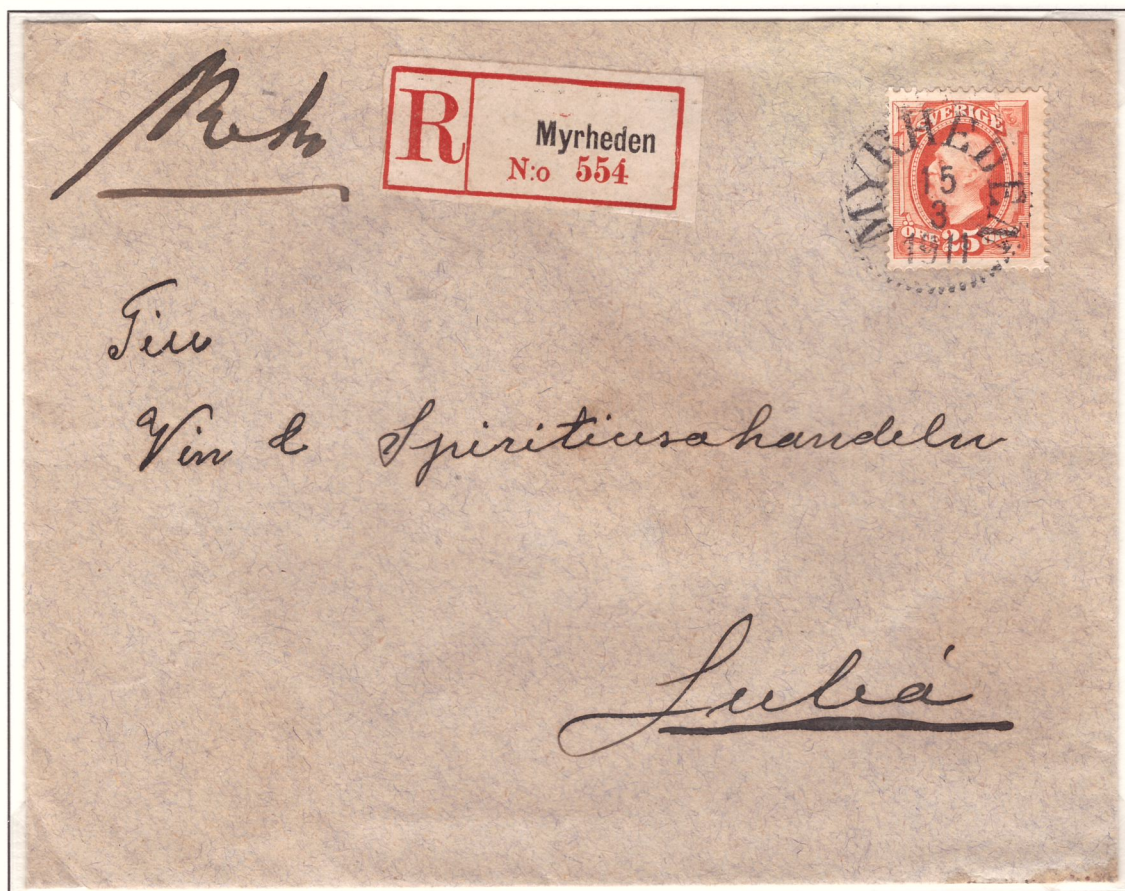 Rek
R
Myrheden
N:o 554
SVERIGE
ÖRE 25
MYRHEDEN
15
3
1911
Till
Vin & Spirituosahandeln
Luleå